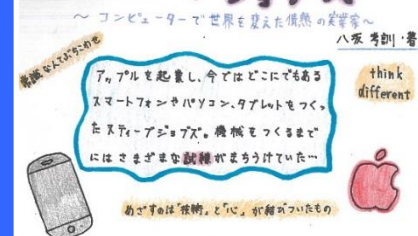 ～コンピューターで世界を変えた情熱の実業家～
八坂 考訓・著
常識なんてぶちこわせ
think
different
アップルを起業し、今ではどこにでもある
スマートフォンやパソコン、タブレットをつくっ
たスティーブジョブズ。機械をつくるまで
にはさまざまな試練がまちうけていた…
めざすのは「技術」と「心」が結びついたもの